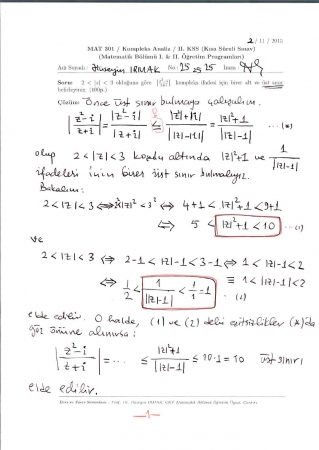 2 / 11 / 2015
MAT 301 / Kompleks Analiz / II. KSS (Kısa Süreli Sınav)
(Matematik Bölümü I. & II. Öğretim Programları)
Adı Soyadı: Hüseyin IRMAK No.: 25 25 25 İmza:
Soru: 2 < |z| < 3 olduğuna göre |z²-i / z+i| kompleks ifadesi için birer alt ve üst sınır
belirleyiniz. (100p.)
Çözüm: Önce üst sınır bulmaya çalışalım.
|z²-i / z+i| = |z²-i| / |z+i| ≤ (|z²|+|i|) / ||z|-|i|| = (|z|²+1) / ||z|-1| ... (*)
olup 2<|z|<3 koşulu altında |z|²+1 ve 1 / ||z|-1|
ifadeleri için birer üst sınır bulmalıyız.
Bakalım:
2<|z|<3 ⇔ 2²<|z|²<3² ⇔ 4+1<|z|²+1<9+1
⇔ 5 < |z|²+1 < 10 ... (1)
ve
2<|z|<3 ⇔ 2-1<|z|-1<3-1 ⇔ 1<|z|-1<2
≡ 1<||z|-1|<2
⇔ 1/2 < 1 / ||z|-1| < 1/1 = 1 ... (2)
elde edilir. O halde, (1) ve (2) deki eşitsizlikler (*)da
göz önüne alınırsa:
|z²-i / z+i| = ... ≤ (|z|²+1) / ||z|-1| ≤ 10·1 = 10 üst sınırı
elde edilir.
-1-